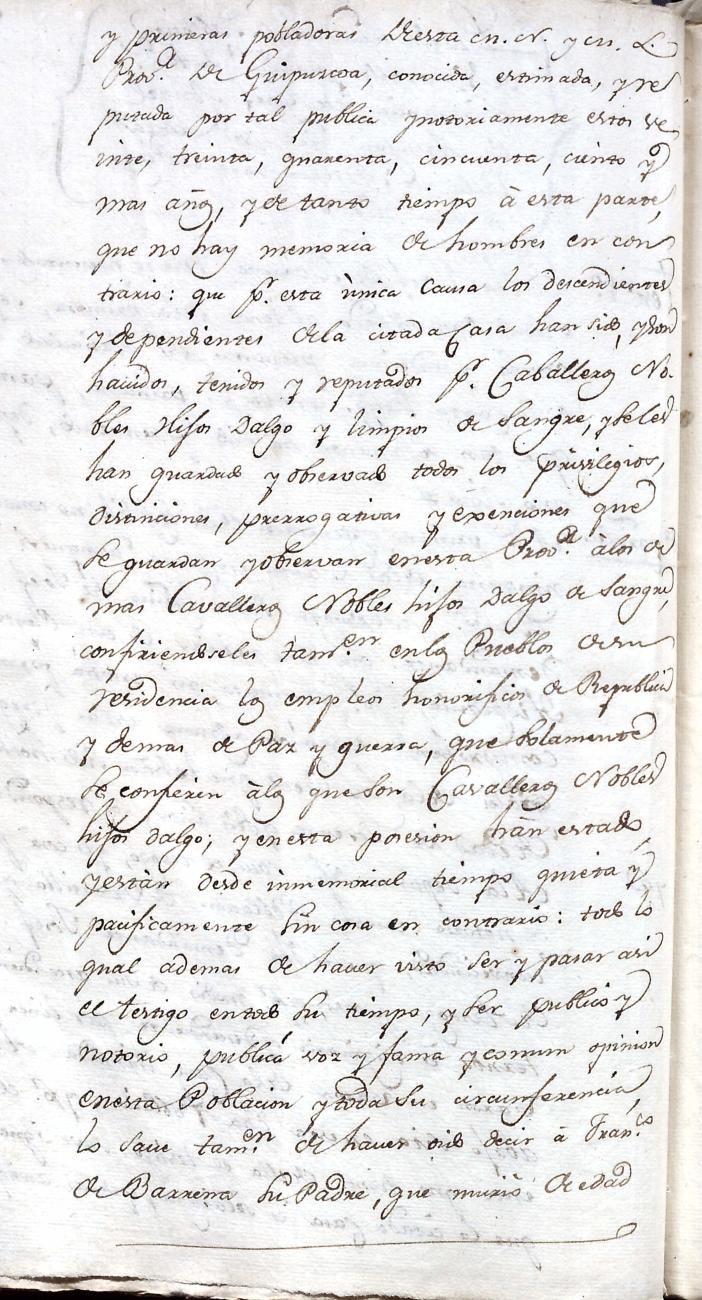 y primeras pobladoras desta M. N. y M. L.
Prov.ª de Guipuscoa, conocida, estimada, y re
putada por tal publica ynotoriamente estos ve
inte, treinta, quarenta, cincuenta, ciento y
mas años, y de tanto tiempo à esta parte,
que no hay memoria de hombres en con
trario: que p.r esta ùnica Causa los descendientes
y dependientes dela citada Casa han sido, y son
havidos, tenidos y reputados p.r Caballeros No-
bles Hijos Dalgo y limpios de Sangre, y se les
han guardado y observado todos los privilegios,
distinciones, prerrogativas y exenciones que
se guardan y observan enesta Prov.ª àlos de
mas Cavalleros Nobles hijos Dalgo de Sangre,
confiriendoseles tam.en enlos Pueblos de su
residencia los empleos honorificos de Republica
y demas de Paz y guerra, que solamente
se confieren àlos que son Cavalleros Nobles
hijos dalgo; y enesta posesion hàn estado,
y estàn desde inmemorial tiempo quieta y
pacificamente sin cosa en contrario: todo lo
qual ademas de haver visto ser y pasar asi
el testigo entodo su tiempo, y ser publico y
notorio, publica voz y fama y comun opinion
enesta Poblacion y toda su circunferencia,
lo save tam.en de haver oido decir à Fran.co
de Barrena su Padre, que muriò de edad